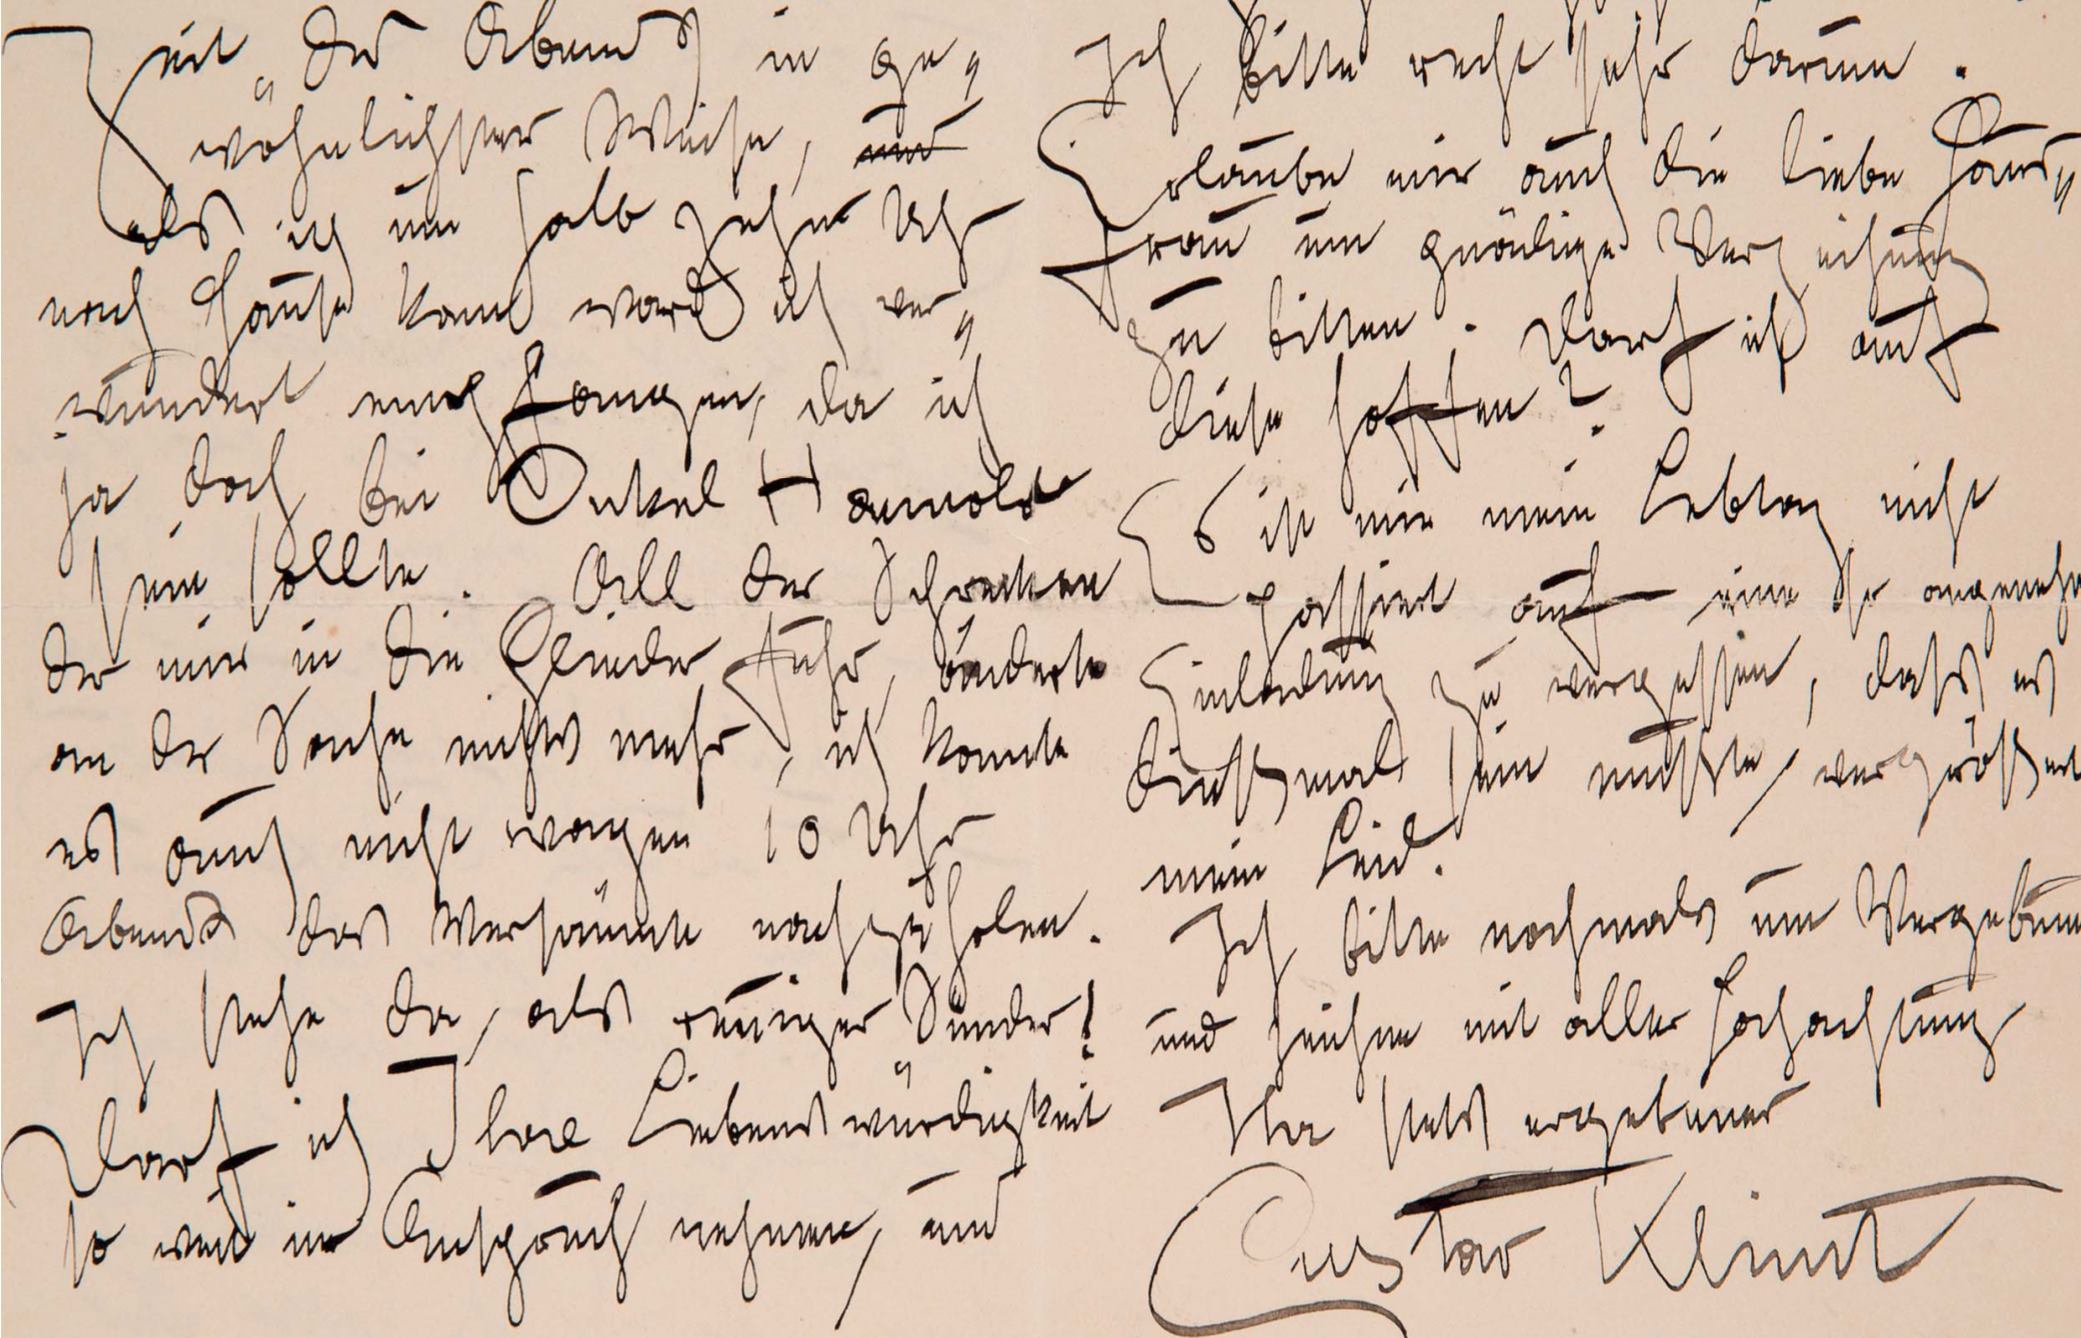 Zeit „des Abends in ge„
wöhnlichster Weise, und
als ich um halb zehn Uhr
nach Hause kam ward ich ver„
wundert empfangen, da ich
ja doch bei Onkel
sein sollte. All der Schrecken
der mir in die Glieder fuhr, änderte
an der Sache nichts mehr, ich konnte
es auch nicht wagen 10 Uhr
Abends das Versäumte nachzuholen.
Ich stehe da, als reuiger Sünder!
Darf ich Ihre Liebenswürdigkeit
so weit in Anspruch nehmen, und
Ich bitte recht sehr darum.
Erlaube mir auch die liebe Haus„
frau um gnädige Verzeihung
zu bitten. Darf ich auf
diese hoffen?
Es ist mir mein Lebtag nicht
passiert auf eine so angenehme
Einladung zu vergessen, dass es
diessmal sein musste, vergrößert
mein Leid.
Ich bitte nochmals um Vergebung
und zeichne mit aller Hochachtung
Ihr stets ergebener
Gustav Klimt